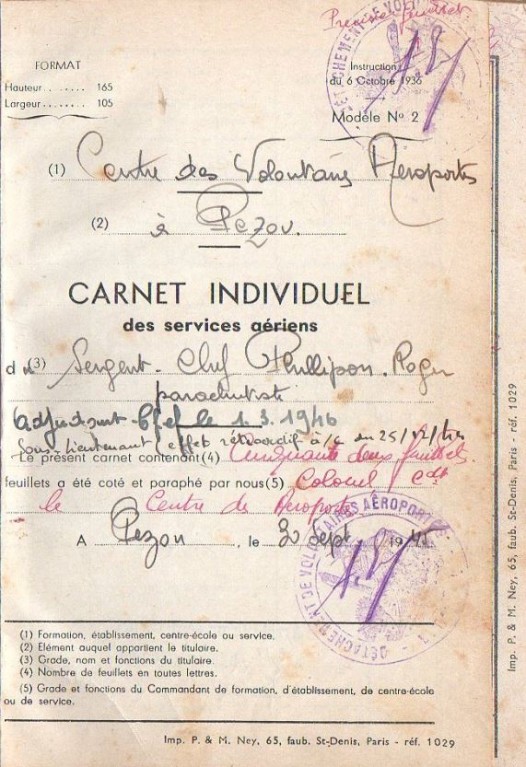 Premier feuillet
FORMAT
Hauteur ....... 165
Largeur ........ 105
Instruction
du 6 Octobre 1936
Modèle No 2
DÉTACHEMENT DE VOL
(1) Centre des Volontaires Aéroportés
(2) à Pezou.
CARNET INDIVIDUEL
des services aériens
d u (3) Sergent-Chef Phillipon Roger
parachutiste
adjudant-Chef le 1.3.1946
Sous-lieutenant effet rétroactif à/c du 25/12/44
Le présent carnet contenant (4) Cinquante deux feuillets
feuillets a été coté et paraphé par nous (5) Colonel Cdt
le Centre de Aéroportés
A Pezou, le 30 sept 1945
DÉTACHEMENT DE VOLONTAIRES AÉROPORTÉS
(1) Formation, établissement, centre-école ou service.
(2) Elément auquel appartient le titulaire.
(3) Grade, nom et fonctions du titulaire.
(4) Nombre de feuillets en toutes lettres.
(5) Grade et fonctions du Commandant de formation, d'établissement, de centre-école
ou de service.
Imp. P. & M. Ney, 65, faub. St-Denis, Paris - réf. 1029
Imp. P. & M. Ney, 65, faub. St-Denis, Paris - réf. 1029